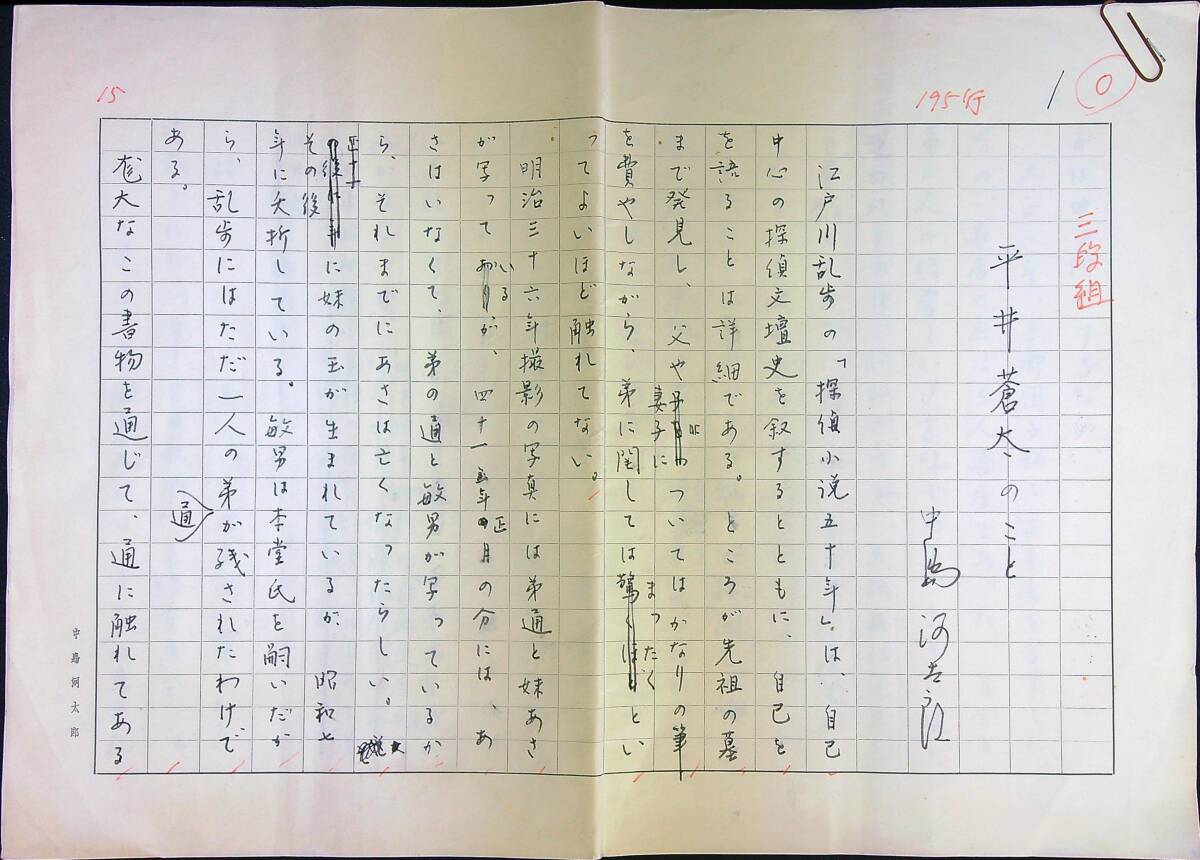 1 0
195行
15
三段組
平井蒼太のこと
中島河太郎
江戸川乱歩の「探偵小説五十年」は、自己
中心の探偵文壇史を叙するとともに、自己を
を語ることは詳細である。ところが先祖の墓
まで発見し、父や妻子についてはかなりの筆
を費やしながら、弟に関してはまったくとい
ってよいほど触れてない。
明治三十六年撮影の写真には弟通と妹あさ
が写っているが、四十一年正月の分には、あ
さはいなくて、弟の通と敏男が写っているか
ら、それまでにあさは亡くなったらしい。
その後に妹の玉が生まれているが、昭和七
年に夭折している。敏男は本堂氏を嗣いだか
ら、乱歩にはただ一人の弟通が残されたわけで
ある。
尨大なこの書物を通じて、通に触れてある
中島河太郎